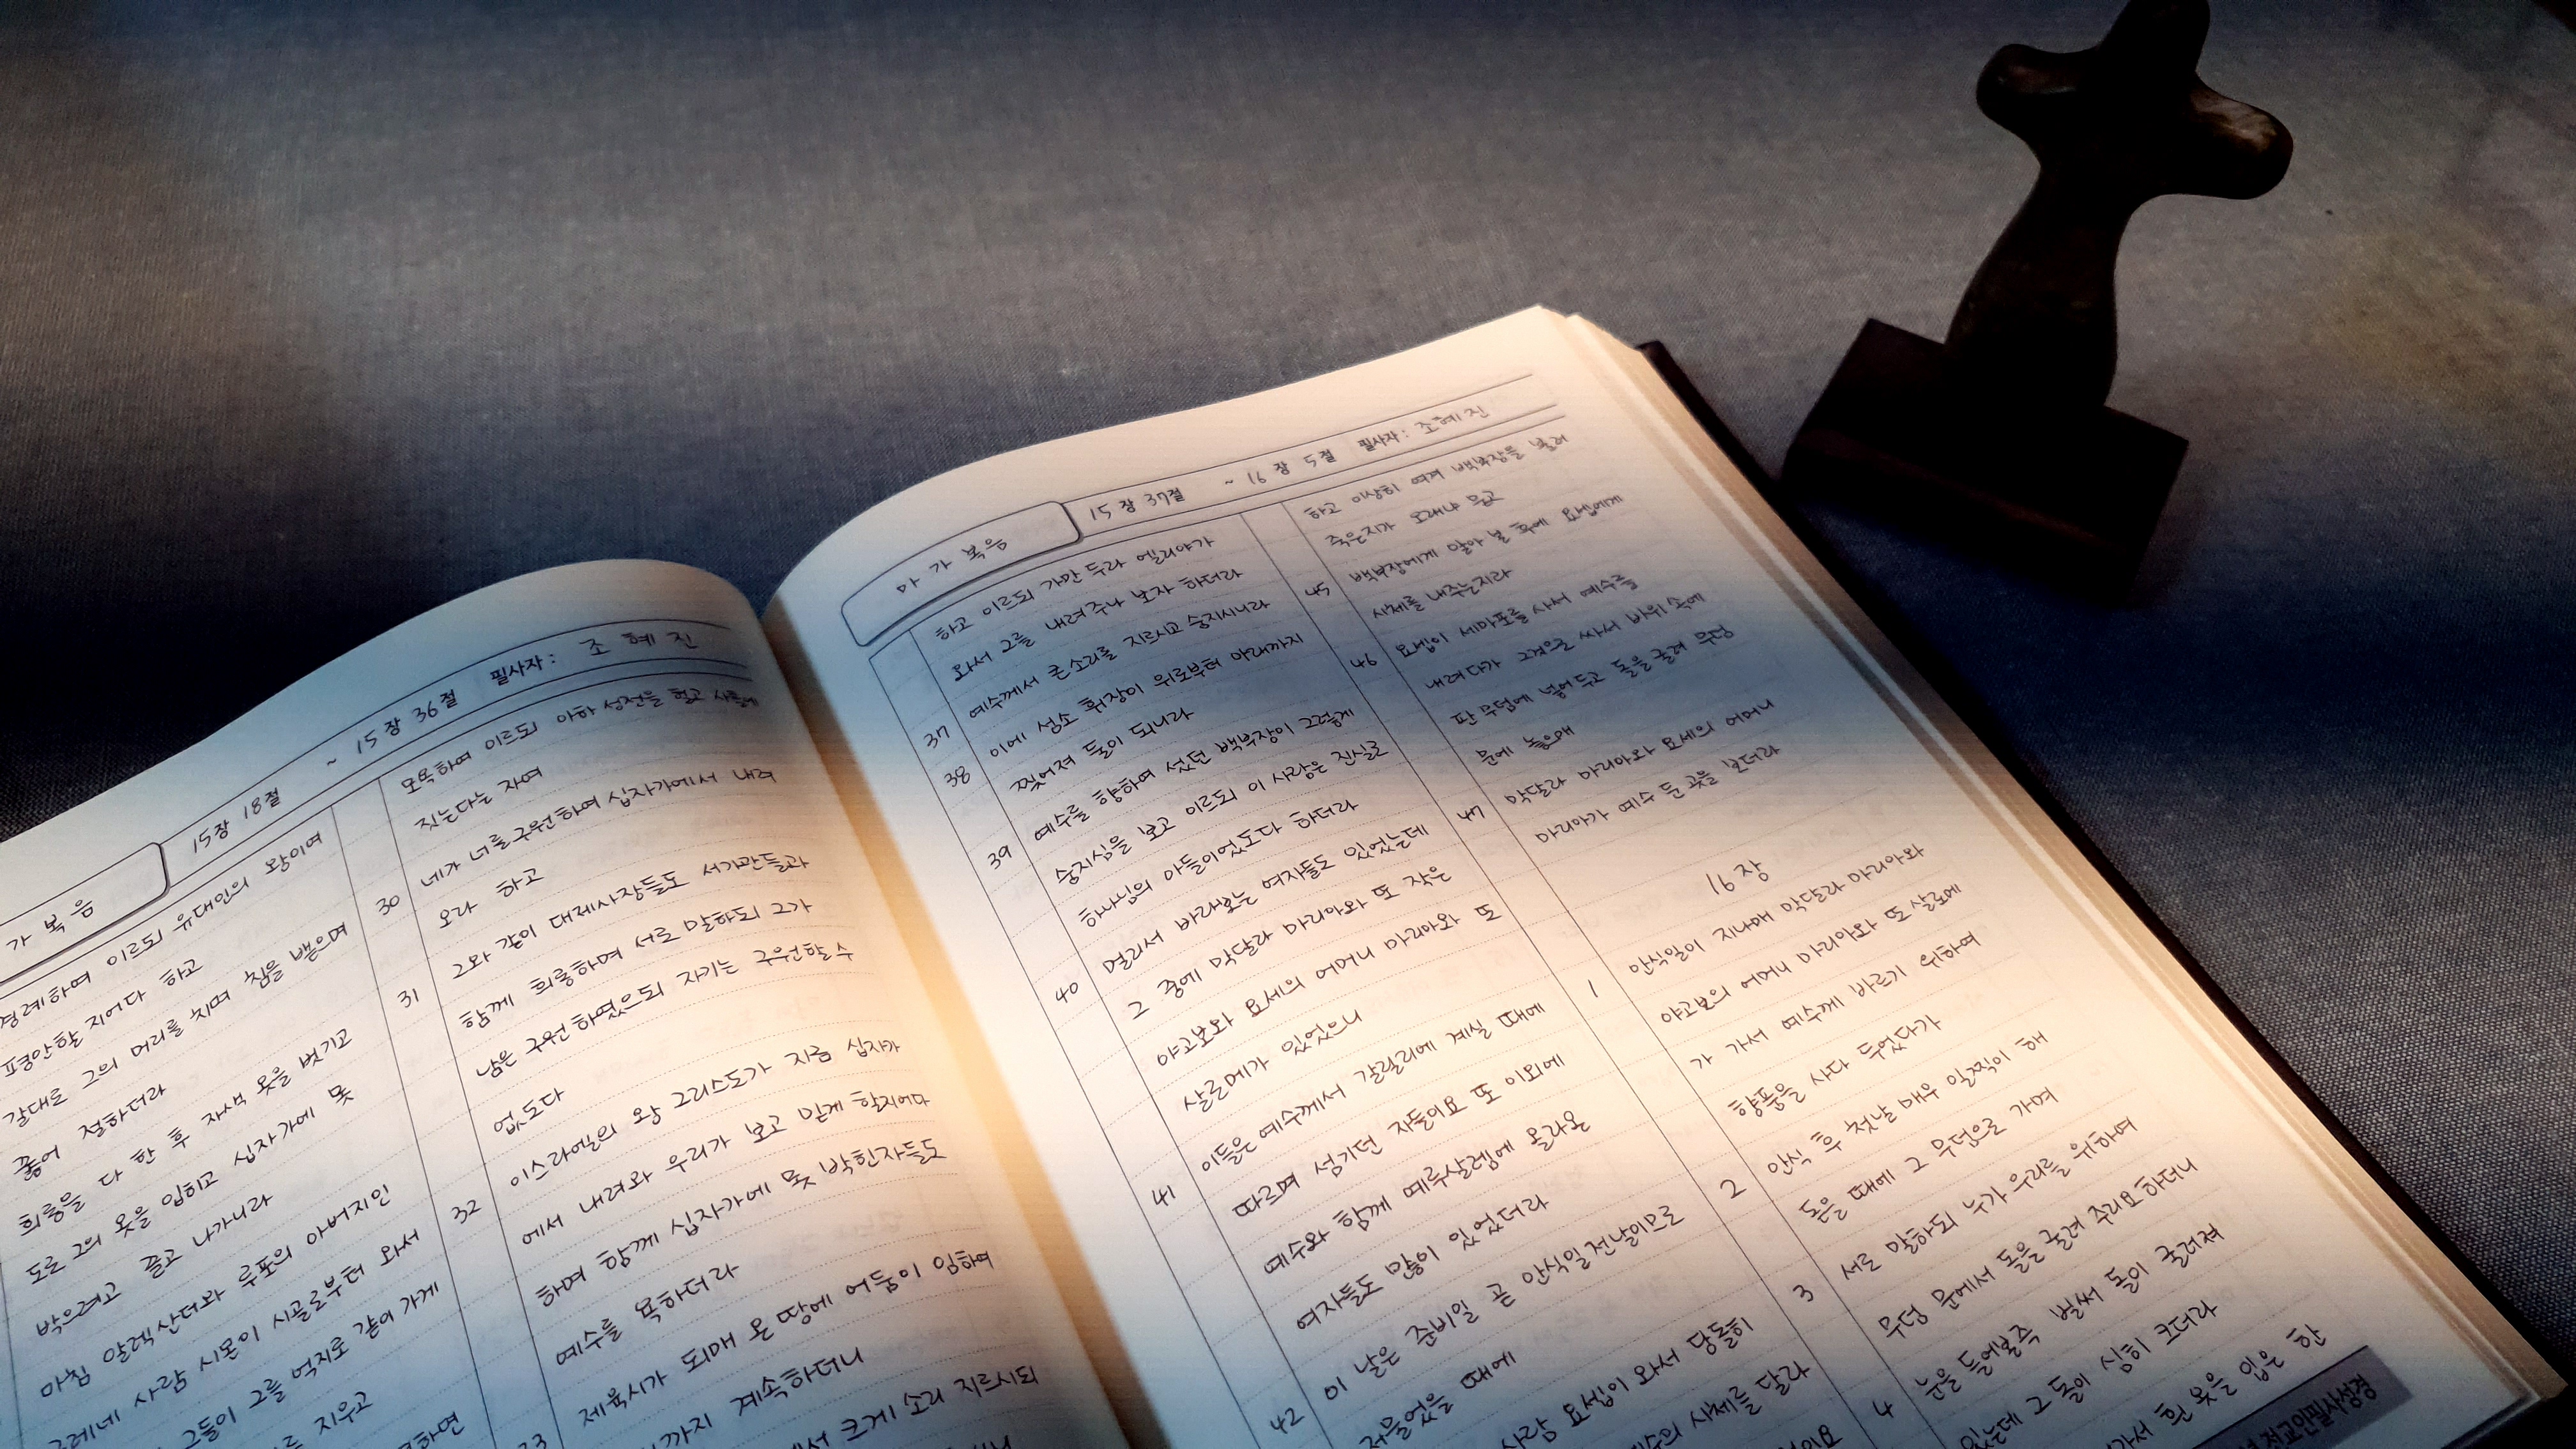 가 복음
15장 18절 ~ 15장 36절 필사자: 조혜진
경례하여 이르되 유대인의 왕이여
평안할 지어다 하고
갈대로 그의 머리를 치며 침을 뱉으며
꿇어 절하더라
희롱을 다 한 후 자색 옷을 벗기고
도로 그의 옷을 입히고 십자가에 못
박으려고 끌고 나가니라
마침 알렉산더와 루포의 아버지인
구레네 사람 시몬이 시골로부터 와서
그들이 그를 억지로 같이 가게
지우고
모욕하여 이르되 아하 성전을 헐고 사흘에
짓는다는 자여
30 네가 너를 구원하여 십자가에서 내려
오라 하고
31 그와 같이 대제사장들도 서기관들과
함께 희롱하며 서로 말하되 그가
남은 구원하였으되 자기는 구원할 수
없도다
32 이스라엘의 왕 그리스도가 지금 십자가
에서 내려와 우리가 보고 믿게 할지어다
하며 함께 십자가에 못 박힌자들도
예수를 욕하더라
33 제육시가 되매 온 땅에 어둠이 임하여
까지 계속하더니
크게 소리 지르시되
마가복음
15장 37절 ~ 16장 5절 필사자: 조혜진
하고 이르되 가만 두라 엘리야가
와서 그를 내려주나 보자 하더라
37 예수께서 큰소리를 지르시고 숨지시니라
38 이에 성소 휘장이 위로부터 아래까지
찢어져 둘이 되니라
39 예수를 향하여 섰던 백부장이 그렇게
숨지심을 보고 이르되 이 사람은 진실로
하나님의 아들이었도다 하더라
40 멀리서 바라보는 여자들도 있었는데
그 중에 막달라 마리아와 또 작은
야고보와 요세의 어머니 마리아와 또
살로메가 있었으니
41 이들은 예수께서 갈릴리에 계실 때에
따르며 섬기던 자들이요 또 이외에
예수와 함께 예루살렘에 올라온
여자들도 많이 있었더라
42 이 날은 준비일 곧 안식일 전날이므로
저물었을 때에
사람 요셉이 와서 당돌히
예수의 시체를 달라
하고 이상히 여겨 백부장을 불러
죽은지가 오래냐 묻고
45 백부장에게 알아 본 후에 요셉에게
시체를 내주는지라
46 요셉이 세마포를 사서 예수를
내려다가 그것으로 싸서 바위 속에
판 무덤에 넣어 두고 돌을 굴려 무덤
문에 놓으매
47 막달라 마리아와 요세의 어머니
마리아가 예수 둔 곳을 보더라
16장
1 안식일이 지나매 막달라 마리아와
야고보의 어머니 마리아와 또 살로메
가 가서 예수께 바르기 위하여
향품을 사다 두었다가
2 안식 후 첫날 매우 일찍이 해
돋을 때에 그 무덤으로 가며
3 서로 말하되 누가 우리를 위하여
무덤 문에서 돌을 굴려 주리요 하더니
4 눈을 들어본즉 벌써 돌이 굴려져
있는데 그 돌이 심히 크더라
흰 옷을 입은 한
전교인필사성경